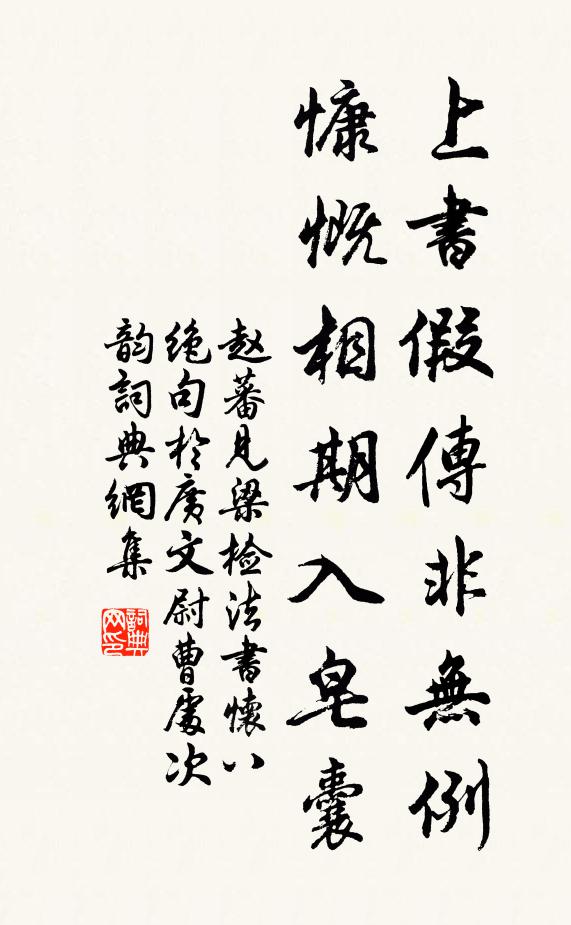 上書假傳非無例
慷慨相期入皂囊
赵蕃見梁檢法書懷八
絶句於廣文尉曹處次
韵詞典網集
詞典網印